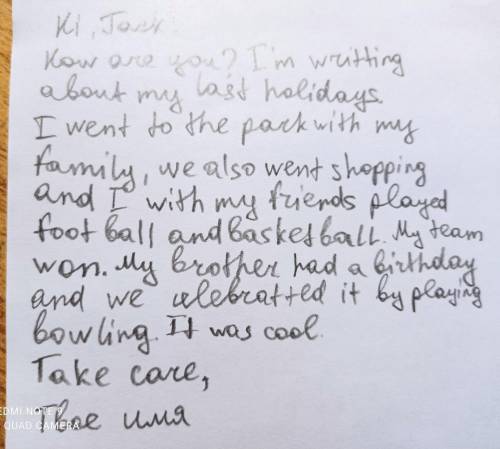 Hi, Jack
How are you? I'm writting
about my last holidays.
I went to the park with my
family, we also went shopping
and I with my friends played
foot ball and basketball. My team
won. My brother had a birthday
and we celebratted it by playing
bowling. It was cool.
Take care,
Твое имя
REDMI NOTE 9
QUAD CAMERA